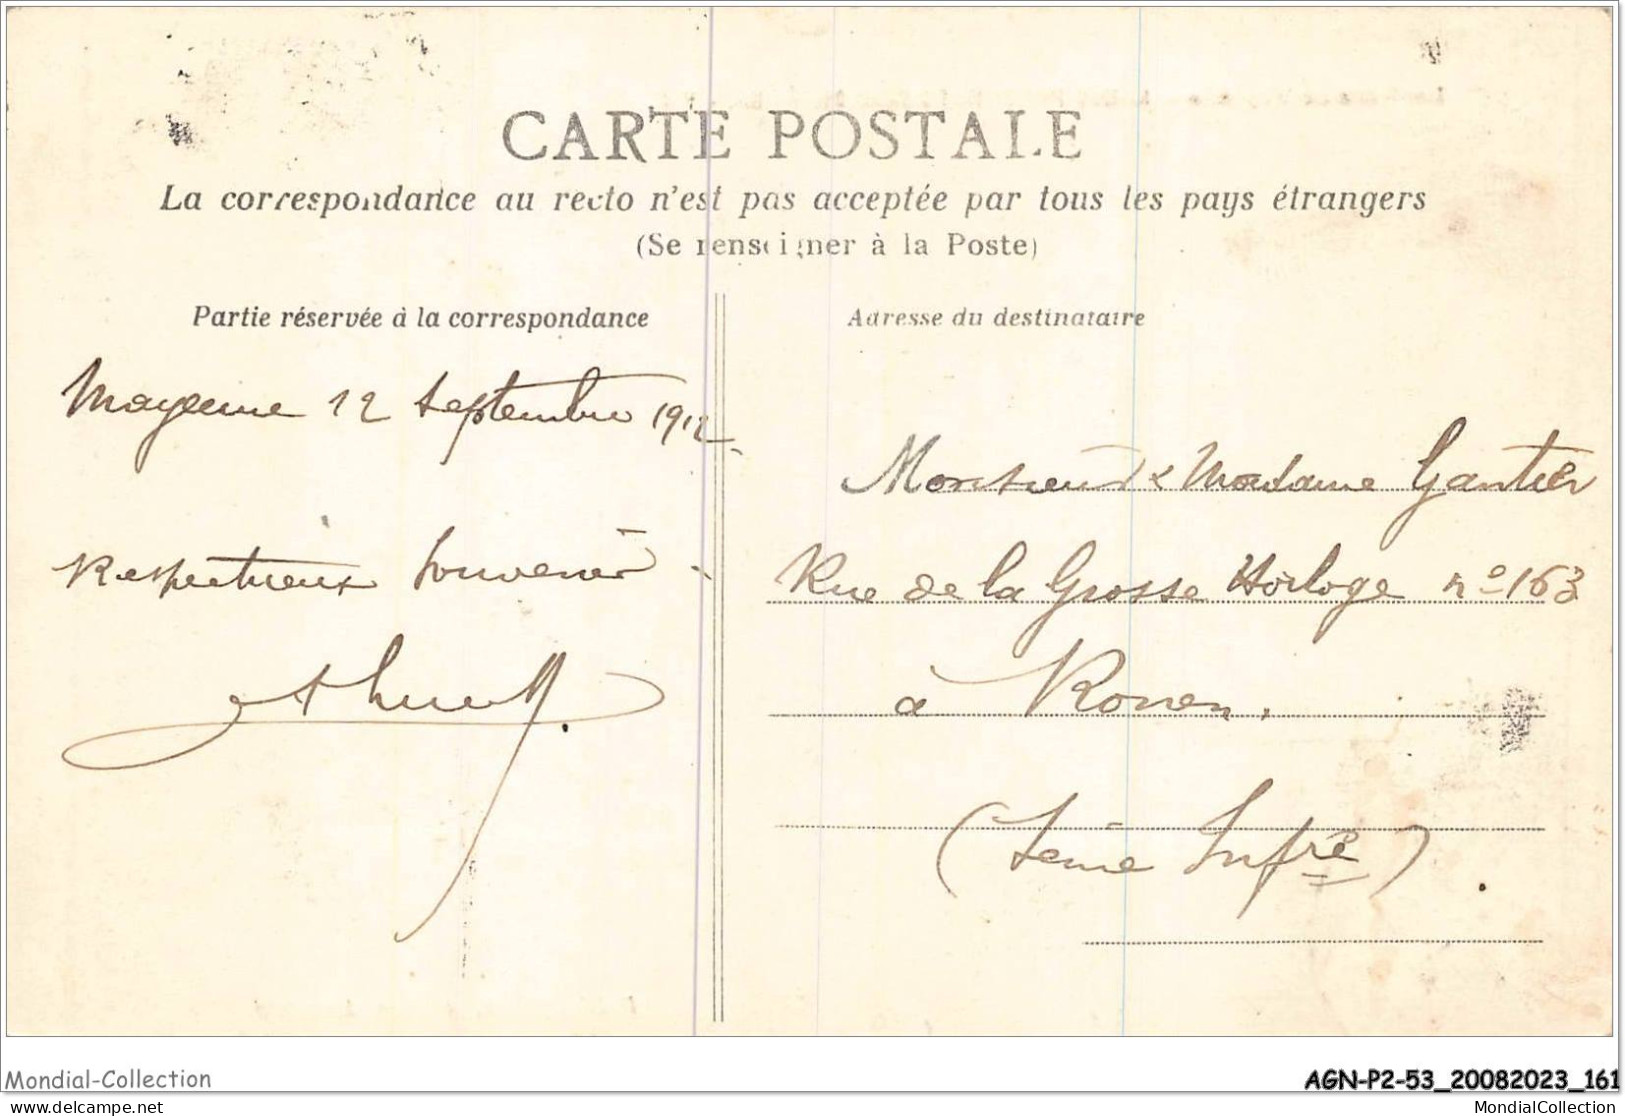 CARTE POSTALE
La correspondance au recto n'est pas acceptée par tous les pays étrangers
(Se renseigner à la Poste)
Partie réservée à la correspondance
Mayenne 12 septembre 1912
Respectueux souvenir
Adresse du destinataire
Monsieur & Madame Gantier
Rue de la Grosse Horloge nº 163
à Rouen.
(Seine Infre)
Mondial-Collection
AGN-P2-53_20082023_161
delcampe.net
MondialCollection